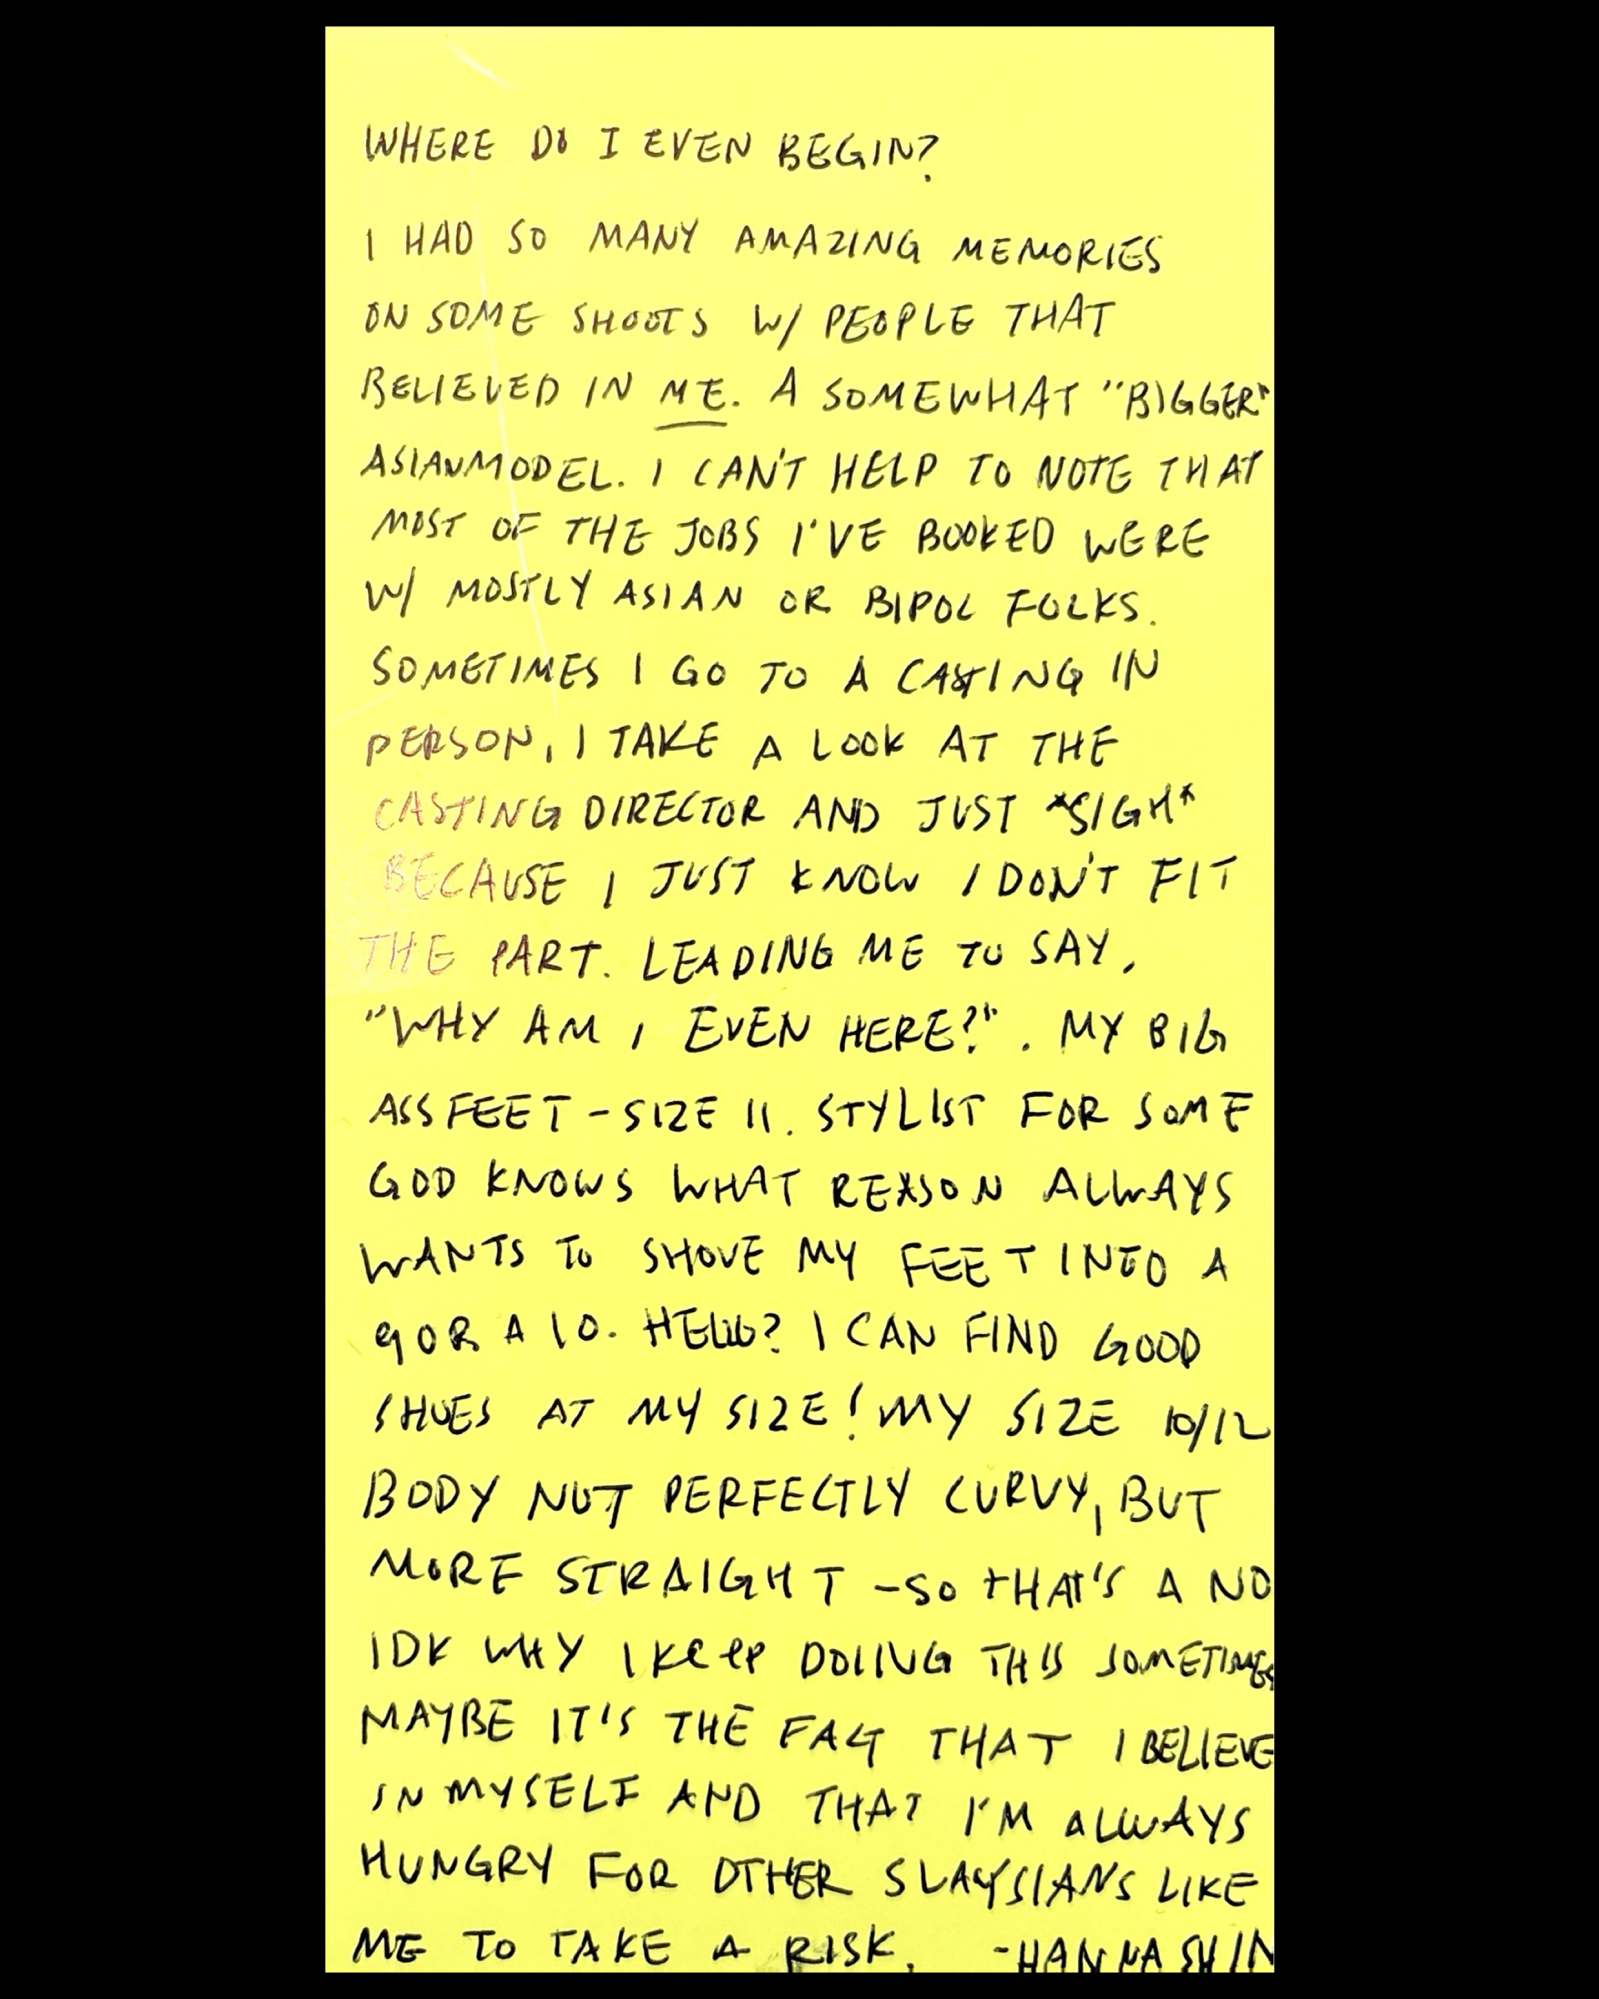 WHERE DO I EVEN BEGIN?
I HAD SO MANY AMAZING MEMORIES
ON SOME SHOOTS W/ PEOPLE THAT
BELIEVED IN ME. A SOMEWHAT "BIGGER"
ASIAN MODEL. I CAN'T HELP TO NOTE THAT
MOST OF THE JOBS I'VE BOOKED WERE
W/ MOSTLY ASIAN OR BIPOC FOLKS.
SOMETIMES I GO TO A CASTING IN
PERSON, I TAKE A LOOK AT THE
CASTING DIRECTOR AND JUST *SIGH*
BECAUSE I JUST KNOW I DON'T FIT
THE PART. LEADING ME TO SAY,
"WHY AM I EVEN HERE?". MY BIG
ASS FEET - SIZE 11. STYLIST FOR SOME
GOD KNOWS WHAT REASON ALWAYS
WANTS TO SHOVE MY FEET INTO A
9 OR A 10. HELLO? I CAN FIND GOOD
SHOES AT MY SIZE! MY SIZE 10/12
BODY NOT PERFECTLY CURVY, BUT
MORE STRAIGHT - SO THAT'S A NO
IDK WHY I KEEP DOIING THIS SOMETIMES
MAYBE IT'S THE FACT THAT I BELIEVE
IN MYSELF AND THAT I'M ALWAYS
HUNGRY FOR OTHER SLAYSIANS LIKE
ME TO TAKE A RISK. -HANNA SHIN